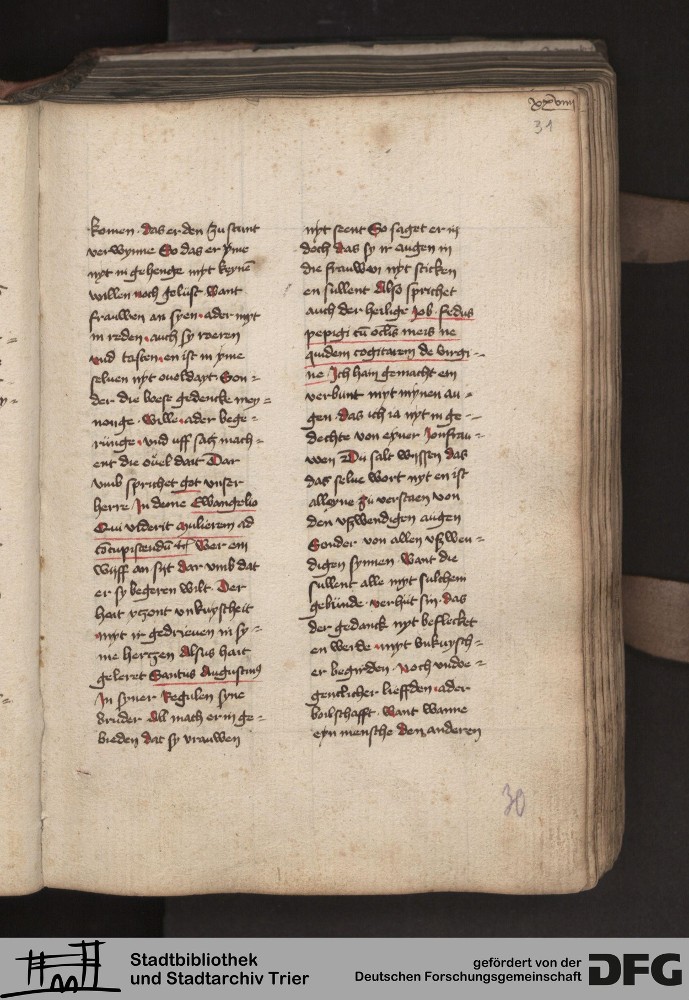 xxviiii
31
komen · das er den zu stunt
verwynne So das er yme
nyt in gehenge myt keynē
willen noch gelust want
frauwen an syen · ader myt
in reden · auch sy roeren
vnd tasten · en ist in yme
seluen nyt oueldayt Son=
der die boese gedencke mey=
nonge · Wille · ader bege=
runge · vnd uff satz mach=
ent die ouel dait Dar
vmb sprichet got vnser
herre In deme Ewangelio
Qui viderit mulierem ad
cōcupiscendū Wer ein
wijff an siit dar vmb dat
er sy begeren wilt Der
hait yczont vnkuyscheit
myt ir gedrieuen in sy=
me hertzen Alsus hait
geleret Santus Augustinus
In syner Regulen syne
bruder All mach er in ge=
bieden dat sy vrauwen
nyt seent So saget er in
doch das sy ir augen in
die frauwen nyt sticken
en sullent Also sprichet
auch der heilige Job · fedus
pepigi cū oclis meis ne
quidem cogitarem de virgi=
ne · Ich hain gemacht ein
verbunt myt mynen au=
gen · das ich ia nyt in ge=
dechte von eyner Jonfrau=
wen Du salt wissen das
das selue wort nyt en ist
alleyne zu verstaen von
den vßwendigen augen
Sonder von allen vßwen=
digen synnen · Want die
sullent alle myt sulchem
gebunde · verhut sin · das
der gedanck nyt beflecket
en werde · myt vnkuysch=
er begirden · noch vndoe=
gentlicher lieffden · ader
boilschafft · Want wanne
eyn mensche den anderen
30
Stadtbibliothek
und Stadtarchiv Trier
gefördert von der
Deutschen Forschungsgemeinschaft
DFG